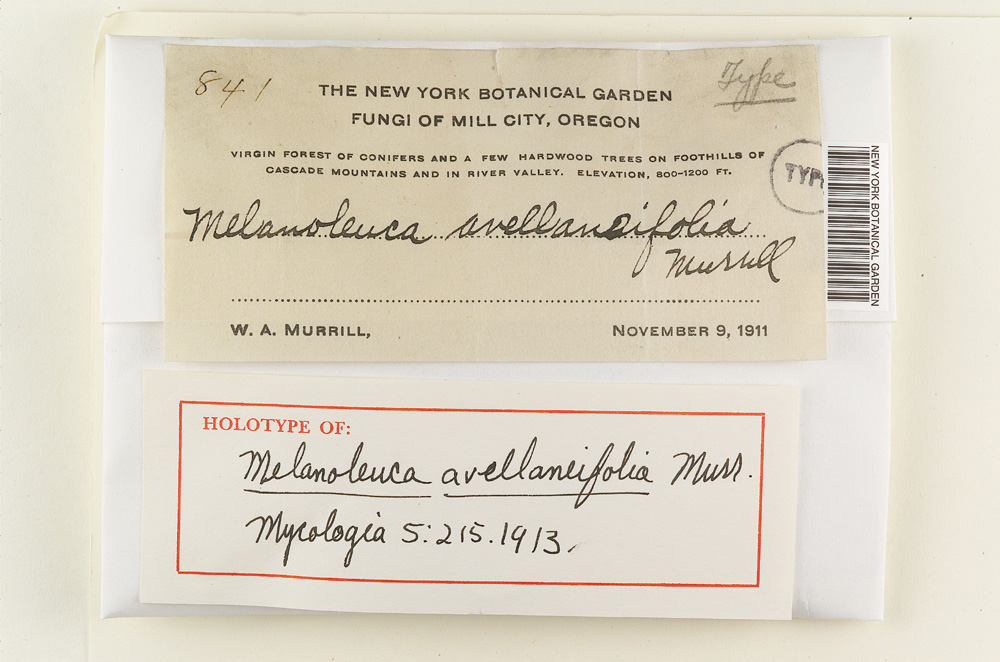 841
Type
THE NEW YORK BOTANICAL GARDEN
FUNGI OF MILL CITY, OREGON
VIRGIN FOREST OF CONIFERS AND A FEW HARDWOOD TREES ON FOOTHILLS OF
CASCADE MOUNTAINS AND IN RIVER VALLEY. ELEVATION, 800-1200 FT.
TYPE
NEW YORK BOTANICAL GARDEN
Melanoleuca avellaneifolia
Murrill
W. A. MURRILL, NOVEMBER 9, 1911
HOLOTYPE OF:
Melanoleuca avellaneifolia Murr.
Mycologia 5:215.1913.